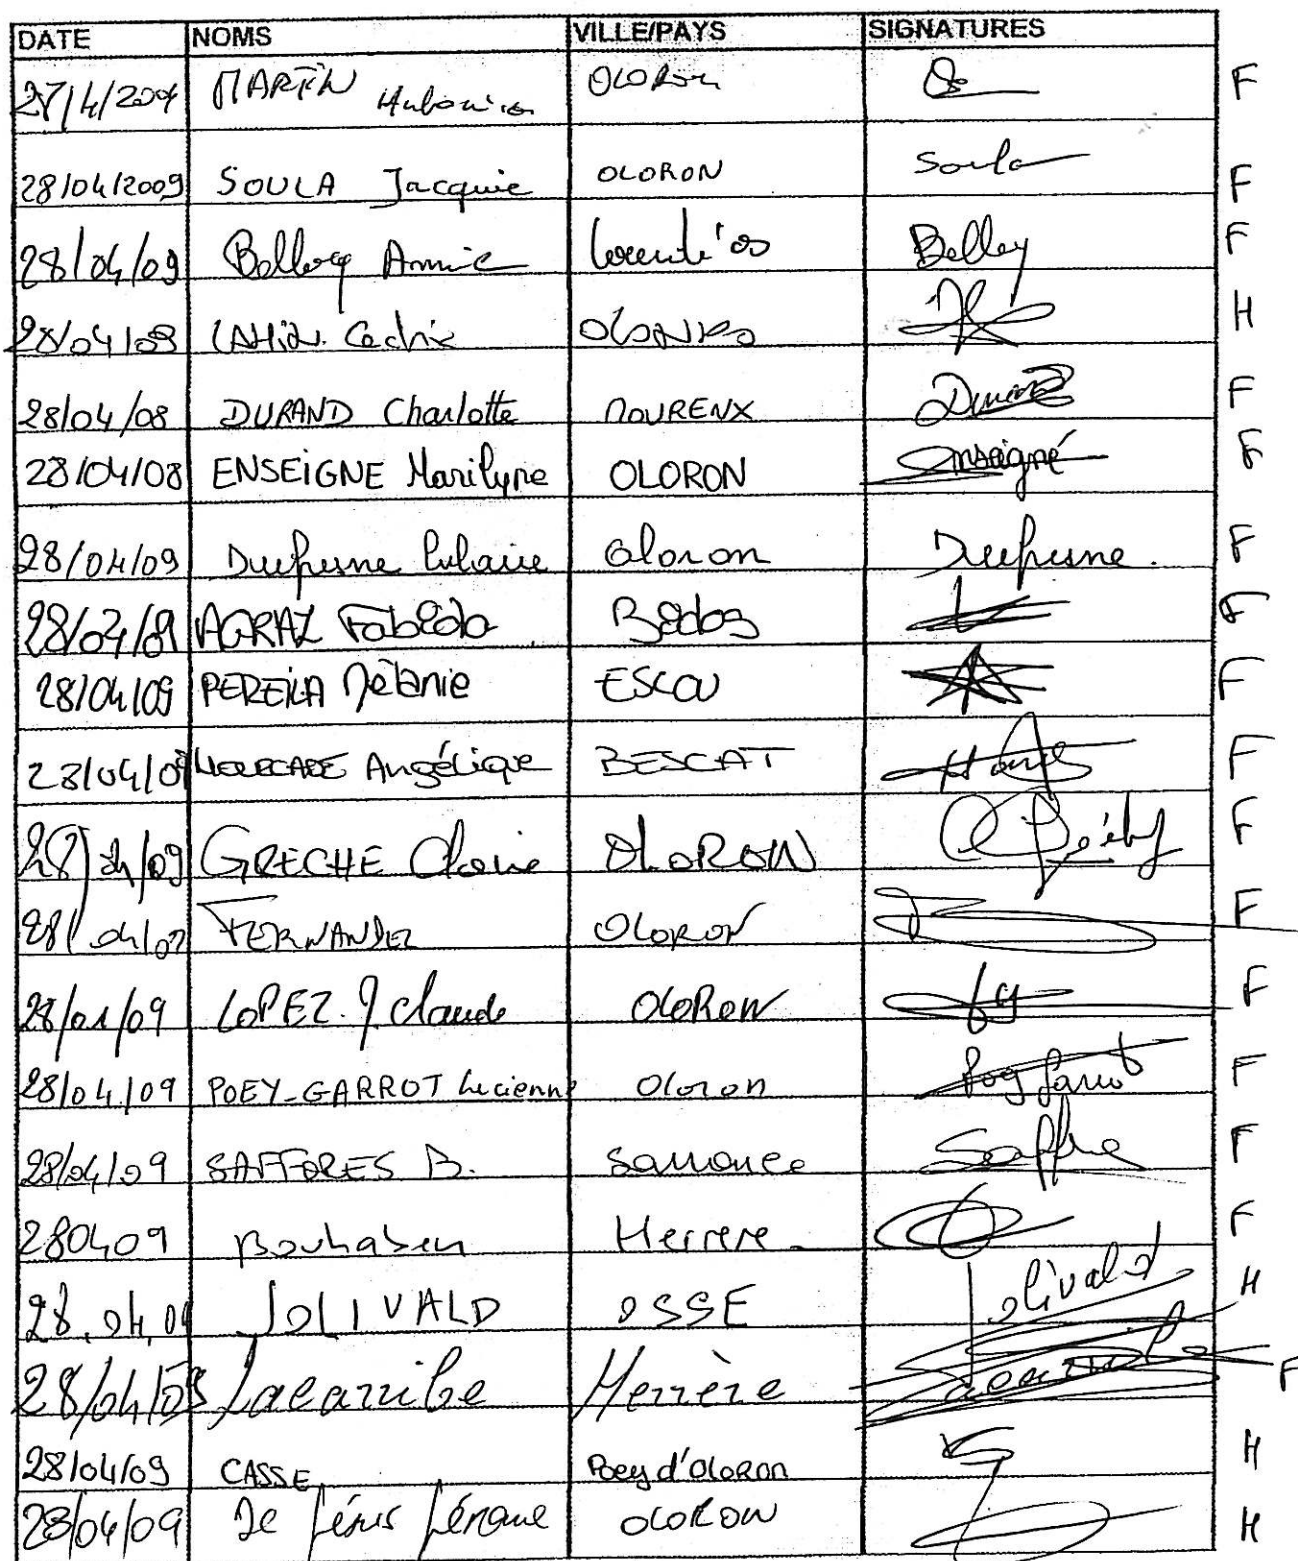 DATE NOMS VILLE/PAYS SIGNATURES
27/4/2009 MARTIN OLORON F
28/04/2009 SOULA Jacquie OLORON Soula F
28/04/09 Bellocq Annie F
28/04/09 H
28/04/08 DURAND Charlotte MOURENX Durand F
28/04/08 ENSEIGNE Marilyne OLORON Enseigné F
28/04/09 Dufresne Oloron Dufresne. F
28/04/09 AGRAZ Bedos F
28/04/09 PEREIRA Mélanie ESCOU F
28/04/09 HOURCADE Angélique BESCAT F
28/04/09 GRECHE Claire OLORON F
28/04/09 FERNANDEZ OLORON F
28/01/09 LOPEZ. J Claude OLORON F
28/04/09 POEY-GARROT Lucienne Oloron F
28/04/09 SAFFORES B. Sarrance F
280409 Bouhaben Herrere F
28.04.09 JOLIVALD OSSE Jolivald H
28/04/09 Lacarribe Herrère F
28/04/09 CASSE Poey d'OLORON H
28/04/09 De OLORON H